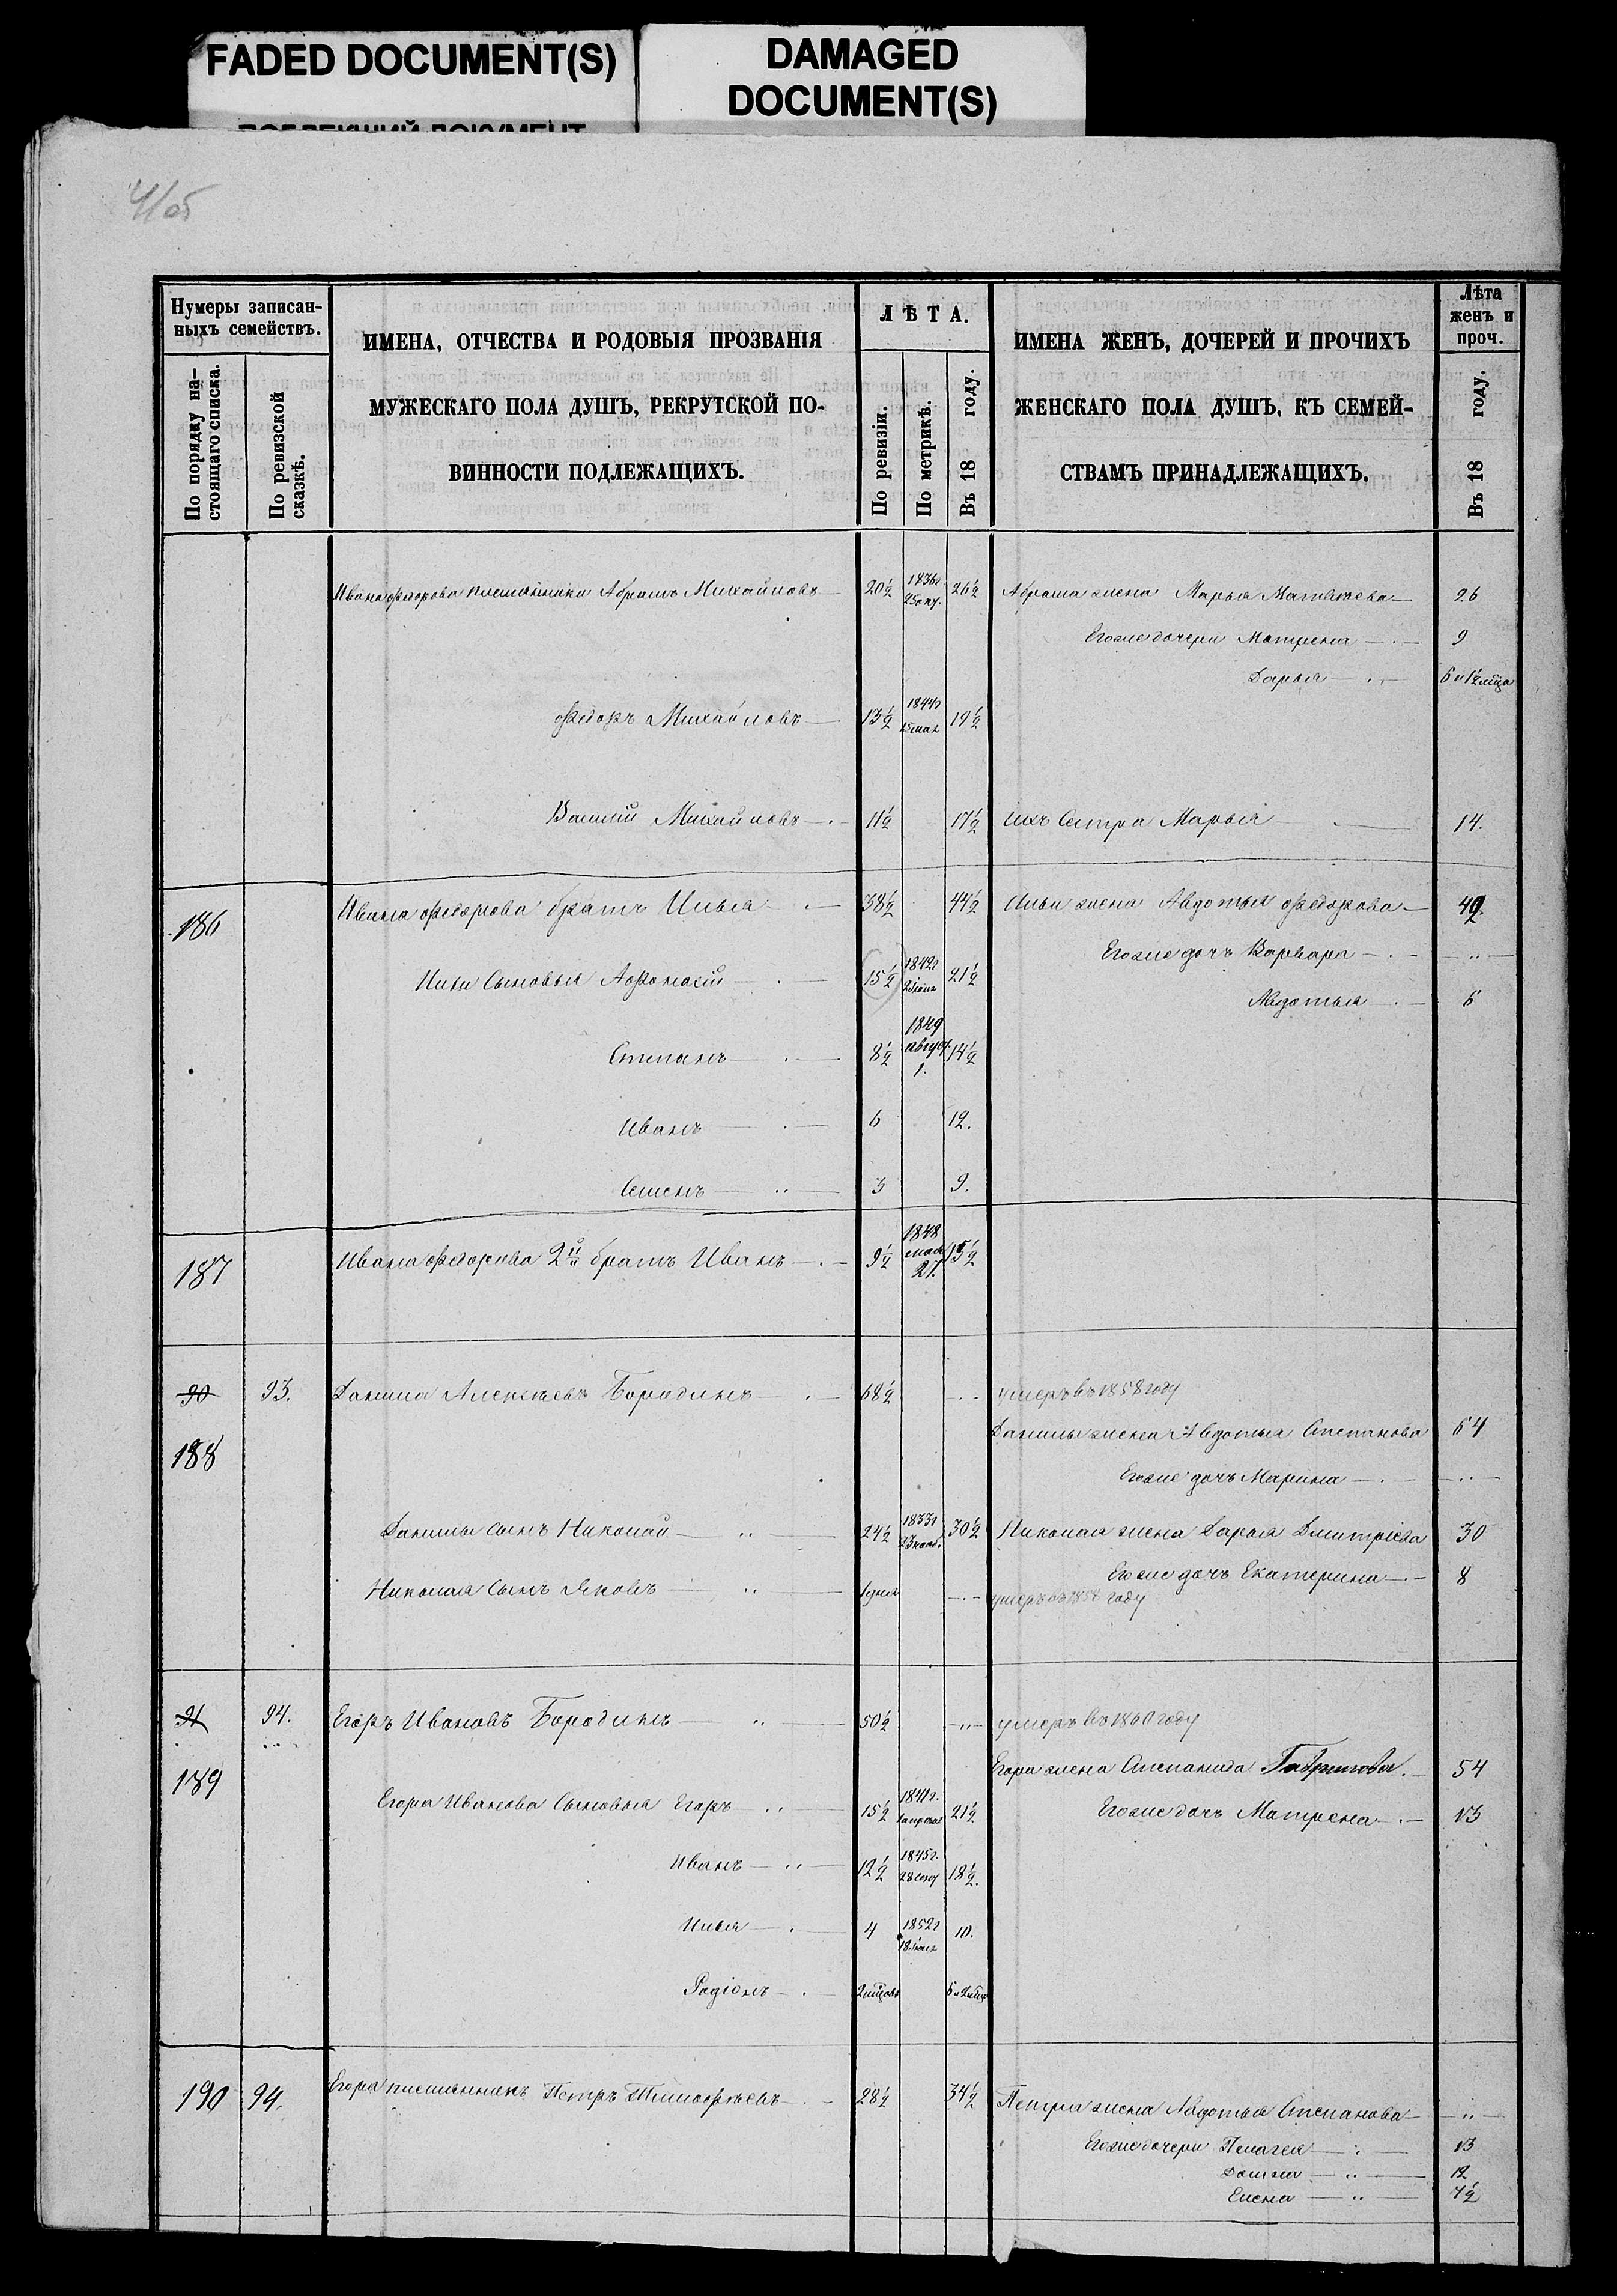 FADED DOCUMENT(S)
DAMAGED
DOCUMENT(S)
4/об
Нумеры записан-
ныхъ семействъ.
По порядку на-
стоящаго списка.
По ревизской
сказкѣ.
ИМЕНА, ОТЧЕСТВА И РОДОВЫЯ ПРОЗВАНІЯ
МУЖЕСКАГО ПОЛА ДУШЪ, РЕКРУТСКОЙ ПО-
ВИННОСТИ ПОДЛЕЖАЩИХЪ.
ЛѢТА.
По ревизіи.
По метрикѣ.
Въ 18 году.
ИМЕНА ЖЕНЪ, ДОЧЕРЕЙ И ПРОЧИХЪ
ЖЕНСКАГО ПОЛА ДУШЪ, КЪ СЕМЕЙ-
СТВАМЪ ПРИНАДЛЕЖАЩИХЪ.
Лѣта
женъ и
проч.
Въ 18 году.
Ивана Федорова племянники Абрамъ Михайловъ 20½ 1836г 25 окт. 26½ Абрама жена Марья Матвѣева 26
Егоже дочери Матрена 9
Дарья 6 и 1½ мѣца
Федоръ Михайловъ 13½ 1844г 19½
Василій Михайловъ 11½ 17½ ихъ Сестра Марья 14.
186 Ивана Федорова братъ Илья 38½ 44½ Ильи жена Авдотья Федорова
Егоже дочь Варвара "
Ильи Сыновья Афонасій 15½ 1842г 21½
Авдотья 6
Степанъ 8½ 1849 август. 1. 14½
Иванъ 6 12.
Семенъ 3 9.
187 Ивана Федорова 2й братъ Иванъ 9½ 1848 мая 27. 15½
90 93. Данила Алексѣевъ Бородинъ 68½ умеръ въ 1858 году
188 Данилы жена Авдотья Степанова 64
Егоже дочь Марина "
Данилы сынъ Николай 24½ 1833г 23 нояб. 30½ Николая жена Дарья Дмитріева 30
Егоже дочь Екатерина 8
Николая Сынъ Яковъ 1 дня умеръ въ 1858 году
91 94. Егоръ Ивановъ Бородинъ 50½ " умеръ въ 1860 году
189 Егора жена Степанида Гаврилова 54
Егора Иванова Сыновья Егоръ 15½ 1841г. апреля 21½ Егоже дочь Матрена 13
Иванъ 12½ 1845г. 18½.
Илья 4 1852г 10.
Родіонъ 2 мѣцовъ 6 и 2 мѣц
190 94. Егора племянникъ Петръ Тимофѣевъ 28½ 34½ Петра жена Авдотья Степанова "
Егоже дочери Пелагея 13
Домна 12
Елена 7½